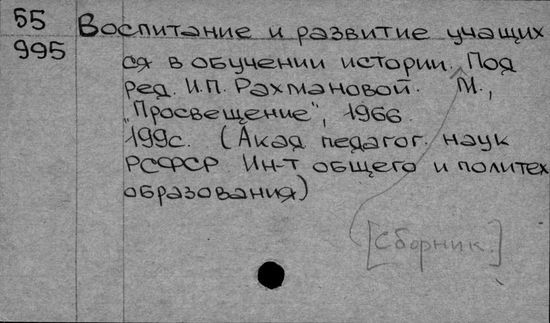 55
995
Воспитание и развитие учащих
ся в обучении истории. Под
ред. И.П. Рахмановой. М.,
"Просвещение", 1966.
199с. (Акад педагог. наук
РСФСР Ин-т общего и политех
образования)
[Сборник.]